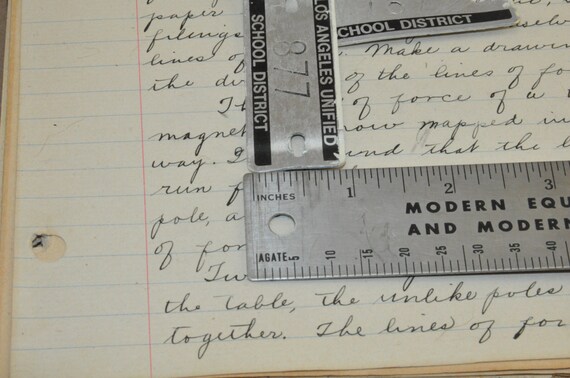 paper
filings
lines of Make a drawin
the di of the lines of fo
Th of force of a
magnet now mapped in
way. that the l
run f
pole, a
of for
Tw
the table, the unlike poles
together. The lines of for
SCHOOL DISTRICT
877
LOS ANGELES UNIFIED
CHOOL DISTRICT
INCHES 1 2 3
MODERN EQU
AND MODERN
AGATE 5 10 15 20 25 30 35 40